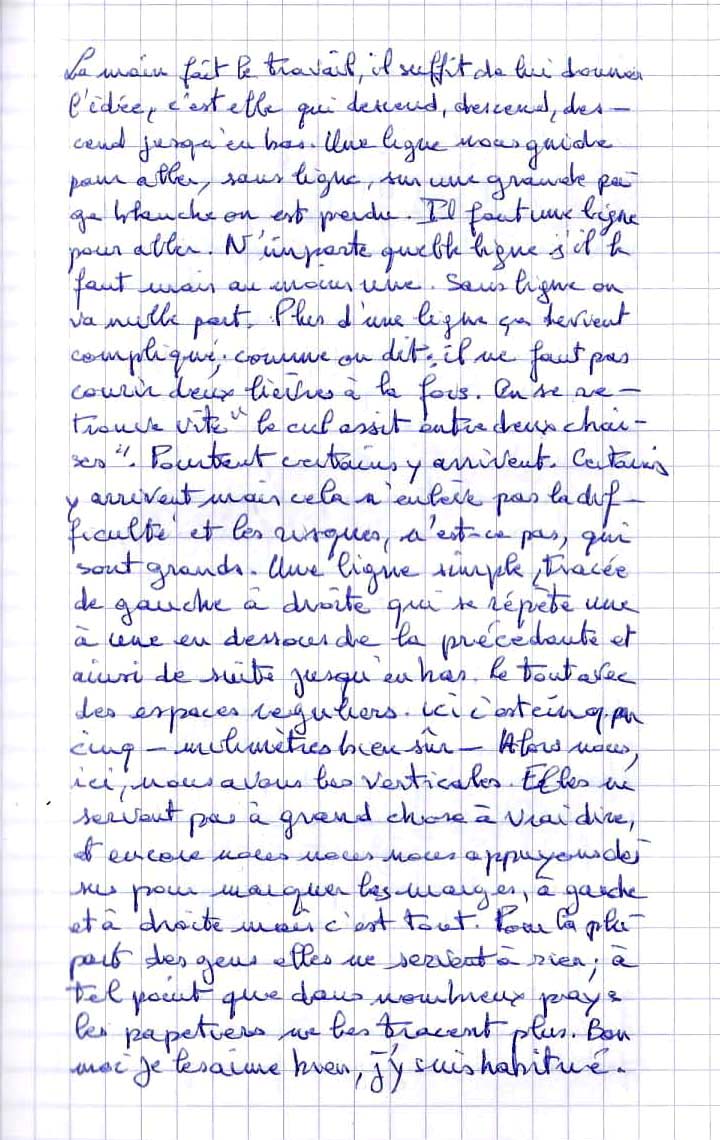 La main fait le travail, il suffit de lui donner
l'idée, c'est elle qui descend, descend, des-
cend jusqu'en bas. Une ligne nous guide
pour aller, sans ligne, sur une grande pa-
ge blanche on est perdu. Il faut une ligne
pour aller. N'importe quelle ligne s'il le
faut mais au moins une. Sans ligne on
va nulle part. Plus d'une ligne ça devient
compliqué; comme on dit: il ne faut pas
courir deux lièvres à la fois. On se re-
trouve vite "le cul assit entre deux chai-
ses". Pourtant certains y arrivent. Certains
y arrivent mais cela n'enlève pas la dif-
ficulté et les risques, n'est-ce pas, qui
sont grands. Une ligne simple, tracée
de gauche à droite qui se répète une
à une en dessous de la précédante et
ainsi de suite jusqu'en bas. Le tout avec
des espaces reguliers. ici c'est cinq par
cinq - milimètres bien sûr - Alors nous,
ici, nous avons les verticales. Elles ne
servent pas à grand chose à vrai dire,
et encore nous nous nous appuyons des
sus pour marquer les marges, à gauche
et à droite mais c'est tout. Pour la plu-
part des gens elles ne servent à rien; à
tel point que dans nombreux pays
les papetiers ne les tracent plus. Bon
moi je les aime bien, j'y suis habitué.